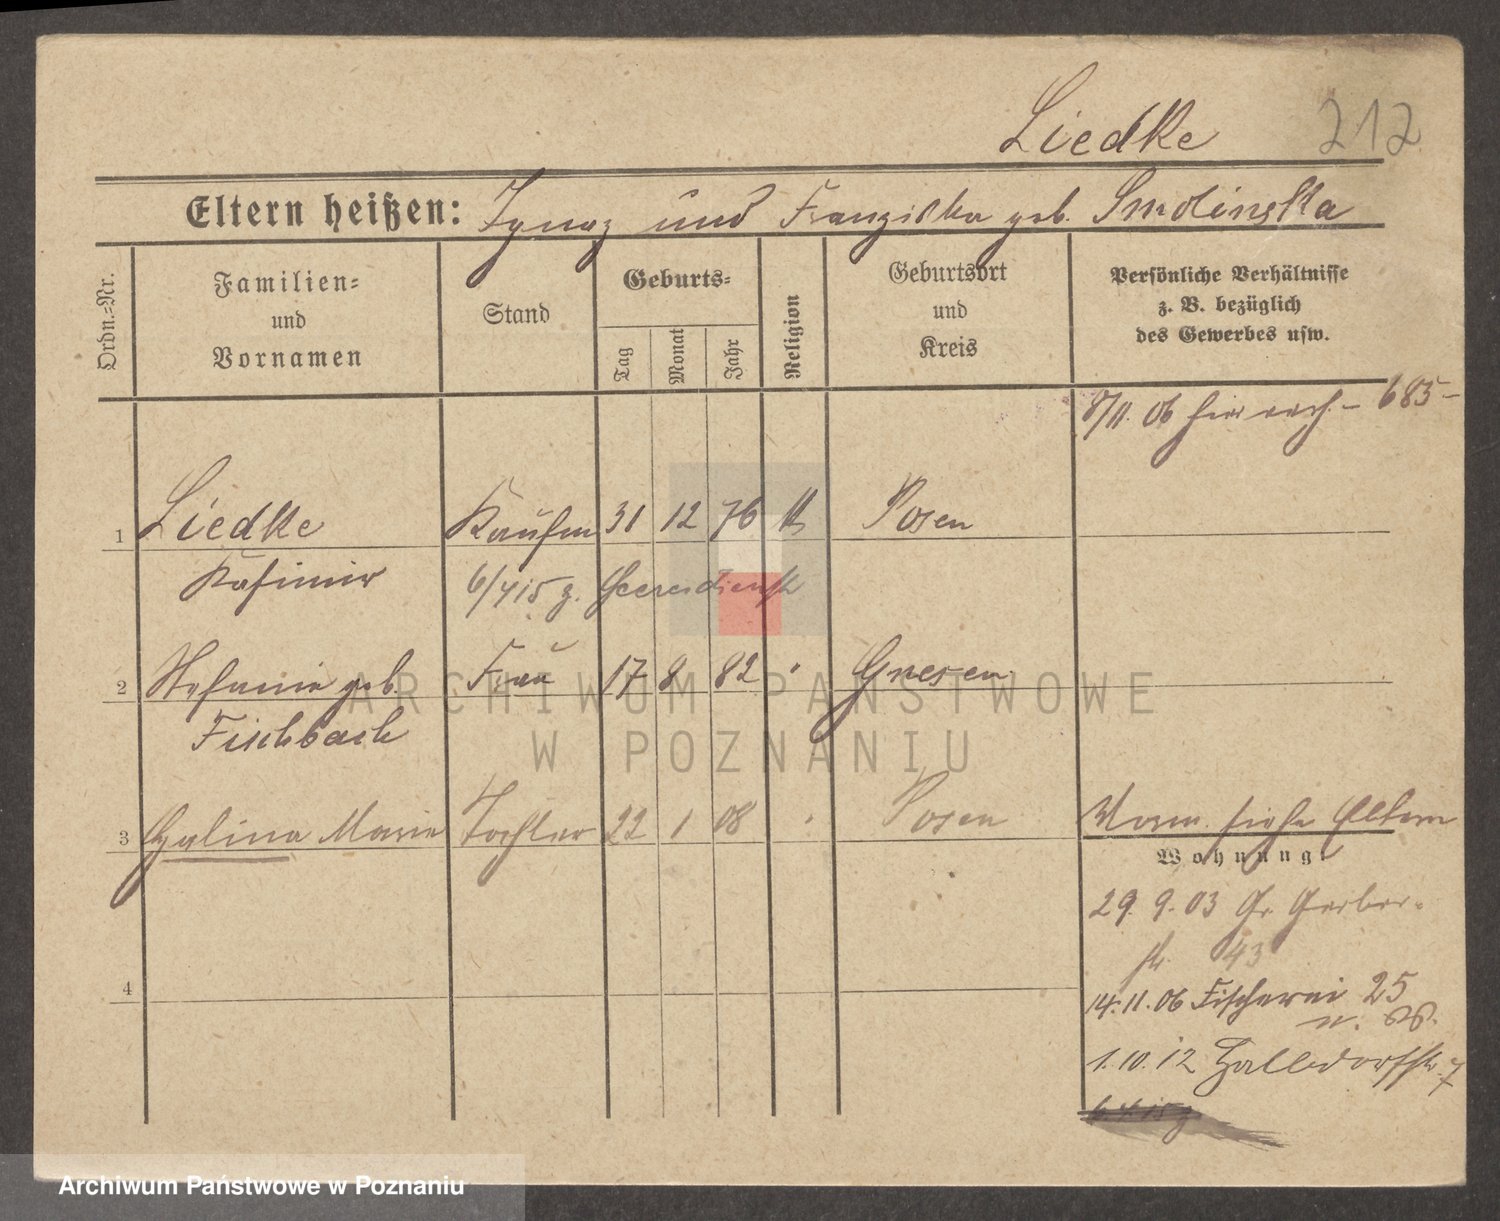 Liedke 212
Eltern heißen: Ignaz und Franziska geb. Smolinska
Ordn.-Nr.
Familien-
und
Vornamen
Stand
Geburts-
Tag
Monat
Jahr
Religion
Geburtsort
und
Kreis
Persönliche Verhältnisse
z. B. bezüglich
des Gewerbes usw.
8/11. 06 685-
1 Liedke Kaufm 31 12 76 k Posen
Kasimir 6/4 15 z. Heeresdienst
2 Stefanie geb. Frau 17 8 82 Gnesen
Fischbach
3 Halina Marie Tochter 22 1 08 Posen
Verm. siehe Eltern
Wohnung.
29. 9. 03 Gr. Gerber-
str. 43
14. 11. 06 Fischerei 25
1. 10. 12 7
6. 4. 15 z
4
ARCHIWUM PAŃSTWOWE
W POZNANIU
Archiwum Państwowe w Poznaniu